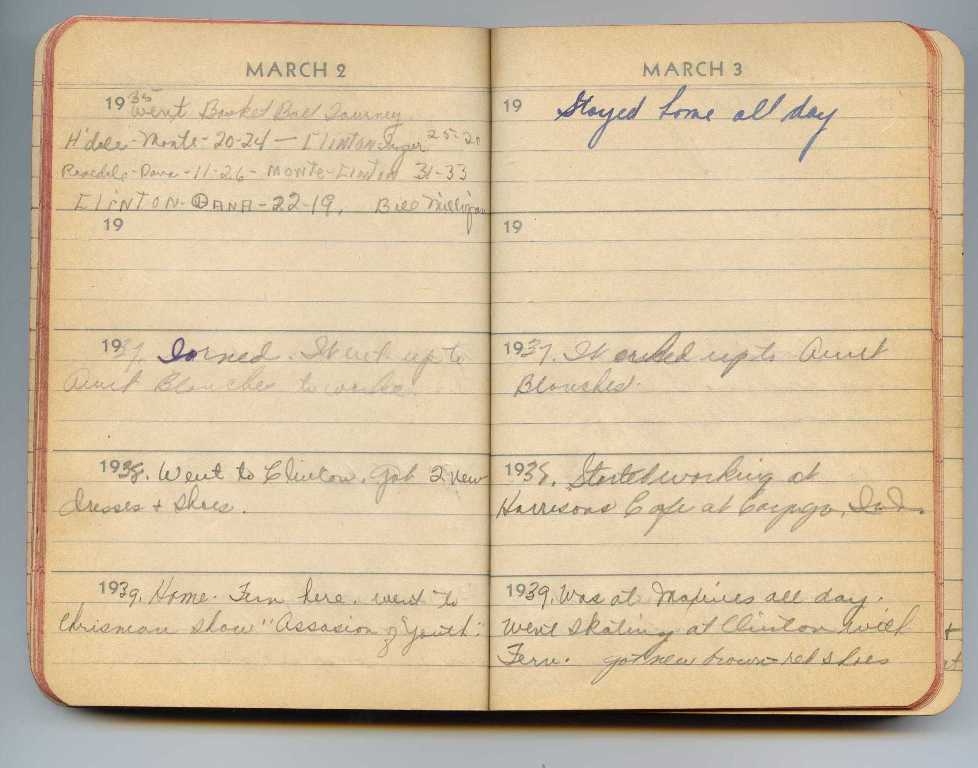 MARCH 2
1935 Went Basket Ball Tourney
H'dale-Monte-20-24-Clinton 25-20
-Dana-11-26-Monte-Clinton 31-33
Clinton-Dana-22-19. Bill Milligan
19
1937. Ironed. Went up to
Aunt Blanches to work.
1938. Went to Clinton. Got 2 new
dresses + shoes.
1939. Home. Fern here. went to
Chrisman show "Assasion of Youth".
MARCH 3
19 Stayed home all day
19
1937. Worked up to Aunt
Blanches.
1938. Started working at
Harrisons Cafe at Cayuga, Ind.
1939. Was at Maxines all day.
Went skating at Clinton with
Fern. got new brown-red shoes